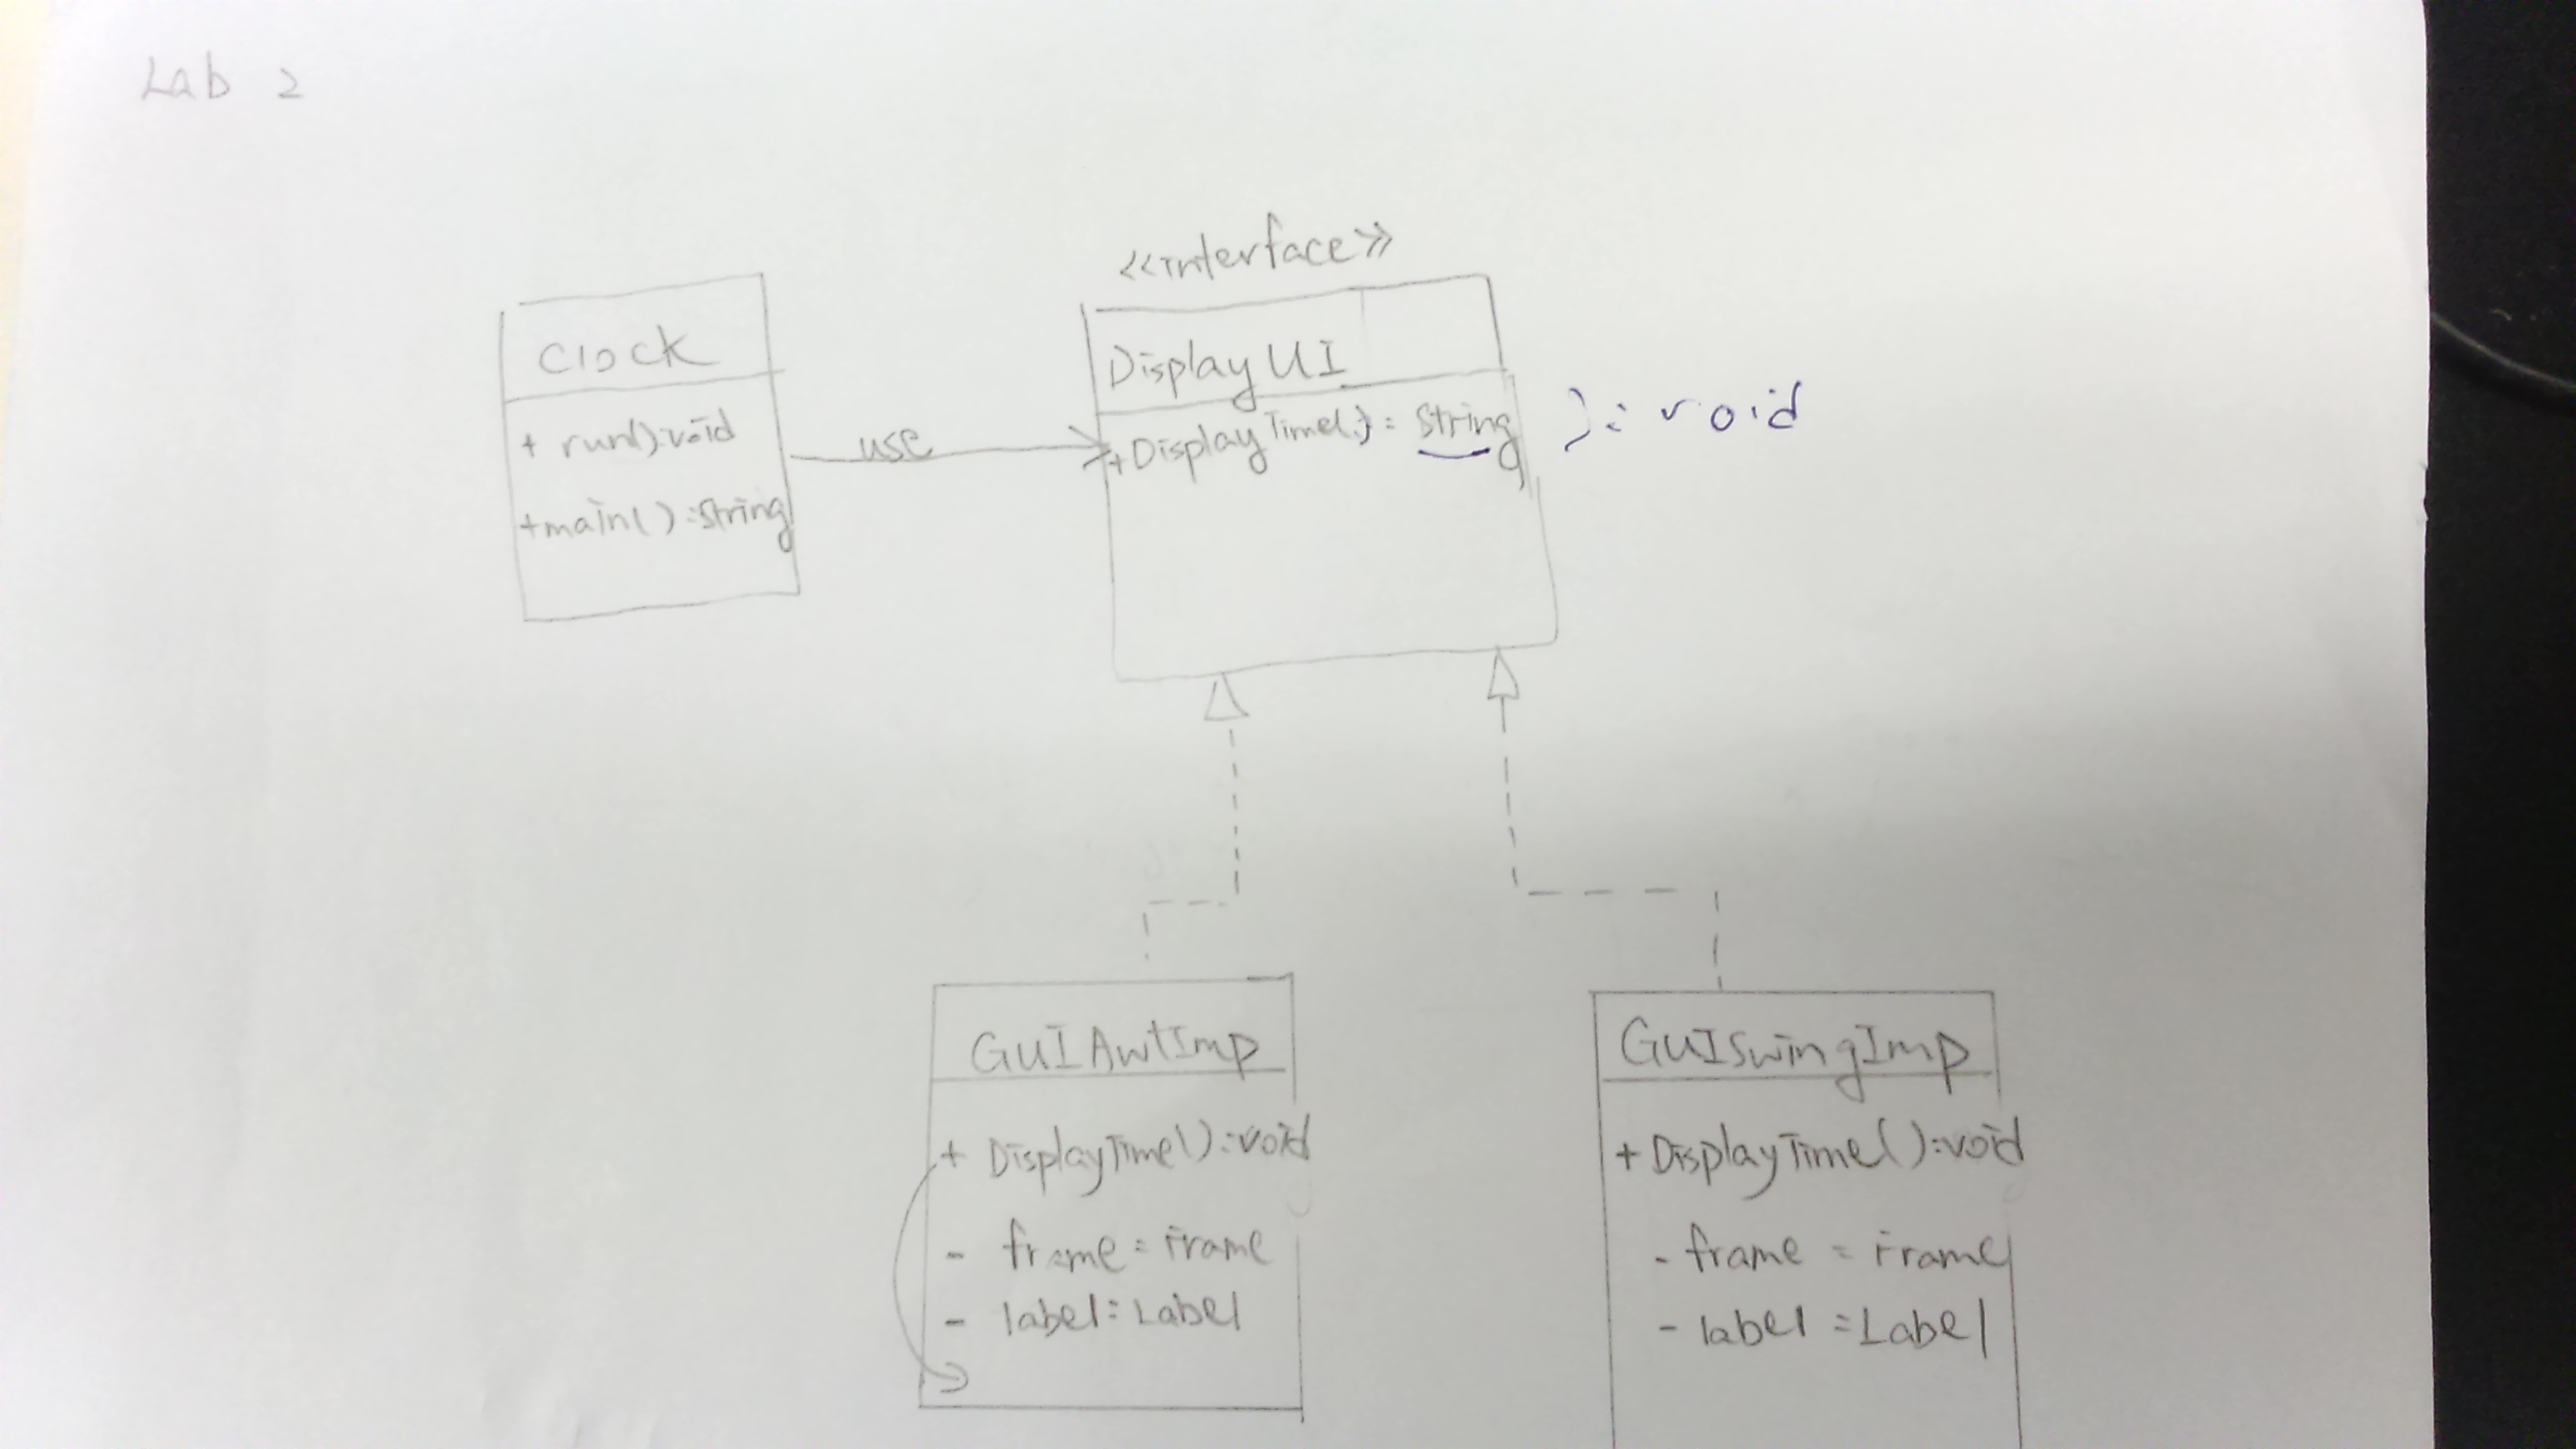 Lab 2
<<interface>>
Clock
+ run():void
+main():String
use
Display UI
+DisplayTime():String
):void
GUIAwtImp
+ DisplayTime():void
- frame:Frame
- label:Label
GUISwingImp
+DisplayTime():void
- frame:Frame
- label:Label